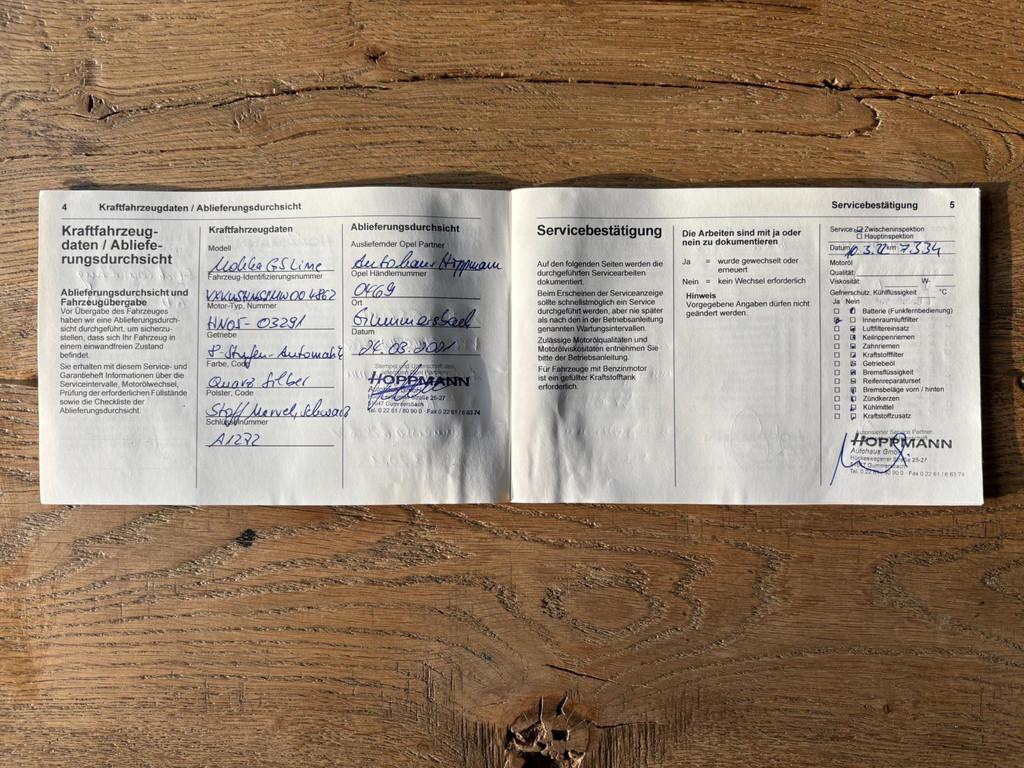 4 Kraftfahrzeugdaten / Ablieferungsdurchsicht
Kraftfahrzeug-
daten / Abliefe-
rungsdurchsicht
Ablieferungsdurchsicht und
Fahrzeugübergabe
Vor Übergabe des Fahrzeuges
haben wir eine Ablieferungsdurch-
sicht durchgeführt, um sicherzu-
stellen, dass sich Ihr Fahrzeug in
einem einwandfreien Zustand
befindet.
Sie erhalten mit diesem Service- und
Garantieheft Informationen über die
Serviceintervalle, Motorölwechsel,
Prüfung der erforderlichen Füllstände
sowie die Checkliste der
Ablieferungsdurchsicht.
Kraftfahrzeugdaten
Modell
Mokka GS Line
Fahrzeug-Identifizierungsnummer
Motor-Typ, Nummer
HN05- 03291
Getriebe
8-Stufen-Automatik
Farbe, Code
Quarz Silber
Polster, Code
Stoff Marvel, Schwarz
Schlüsselnummer
A1272
Ablieferungsdurchsicht
Ausliefernder Opel Partner
Autohaus Hoppmann
Opel Händlernummer
0469
Ort
Gummersbach
Datum
24.03.2021
HOPPMANN
Tel. 0 22 61 / 80 90 0 · Fax 0 22 61 / 6 63 74
Servicebestätigung 5
Servicebestätigung
Auf den folgenden Seiten werden die
durchgeführten Servicearbeiten
dokumentiert.
Beim Erscheinen der Serviceanzeige
sollte schnellstmöglich ein Service
durchgeführt werden, aber nie später
als nach den in der Betriebsanleitung
genannten Wartungsintervallen.
Zulässige Motorölqualitäten und
Motorviskositäten entnehmen Sie
bitte der Betriebsanleitung.
Für Fahrzeuge mit Benzinmotor
ist ein gefüllter Kraftstofftank
erforderlich.
Die Arbeiten sind mit ja oder
nein zu dokumentieren
Ja = wurde gewechselt oder
erneuert
Nein = kein Wechsel erforderlich
Hinweis
Vorgegebene Angaben dürfen nicht
geändert werden.
Service: Zwischeninspektion
Hauptinspektion
Datum 10.3.22 km 7.334
Motoröl
Qualität:
Viskosität: W-
Gefrierschutz, Kühlflüssigkeit - °C
Ja Nein
Batterie (Funkfernbedienung)
Innenraumluftfilter
Luftfiltereinsatz
Keilrippenriemen
Zahnriemen
Kraftstofffilter
Getriebeöl
Bremsflüssigkeit
Reifenreparaturset
Bremsbeläge vorn / hinten
Zündkerzen
Kühlmittel
Kraftstoffzusatz
Autorisierter Service Partner
HOPPMANN
Autohaus GmbH
Gummersbach
Tel. 0 22 61 / 80 90 0 · Fax 0 22 61 / 6 63 74